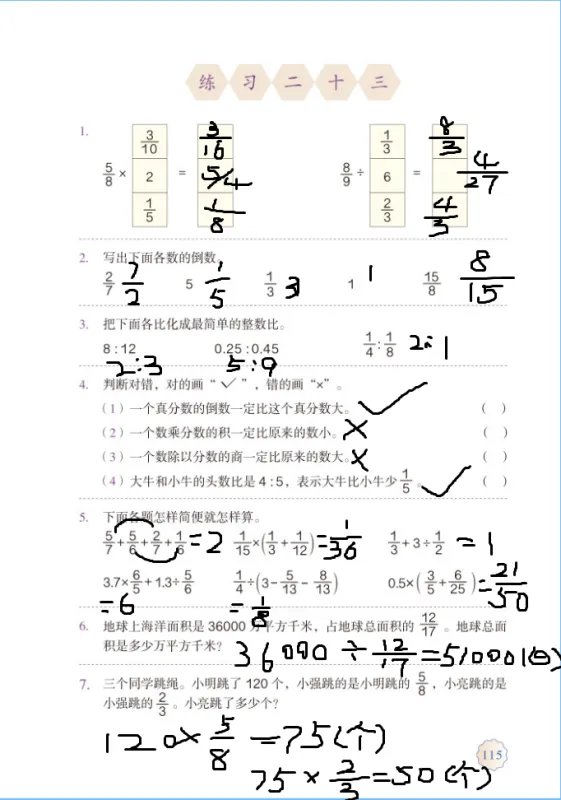 练习二十三
1. 5/8 × 3/10 = 3/16 8/9 ÷ 1/3 = 8/3
2 5/4 6 4/27
1/5 1/8 2/3 4/3
2. 写出下面各数的倒数。
2/7 7/2 5 1/5 1/3 3 1 1 15/8 8/15
3. 把下面各比化成最简单的整数比。
8:12 0.25:0.45 1/4:1/8 2:1
2:3 5:9
4. 判断对错，对的画“✓”，错的画“×”。
（1）一个真分数的倒数一定比这个真分数大。✓ （ ）
（2）一个数乘分数的积一定比原来的数小。× （ ）
（3）一个数除以分数的商一定比原来的数大。× （ ）
（4）大牛和小牛的头数比是 4:5，表示大牛比小牛少 1/5 。✓ （ ）
5. 下面各题怎样简便就怎样算。
5/7+5/6+2/7+1/6 =2 1/15×(1/3+1/12) =1/36 1/3+3÷1/2 =1
3.7×6/5+1.3÷5/6 1/4÷(3−5/13−8/13) 0.5×(3/5+6/25) =21/50
=6 =1/8
6. 地球上海洋面积是 36000 万平方千米，占地球总面积的 12/17 。地球总面
积是多少万平方千米？
36000÷12/17=51000(
7. 三个同学跳绳。小明跳了 120 个，小强跳的是小明跳的 5/8 ，小亮跳的是
小强跳的 2/3 。小亮跳了多少个？
120×5/8=75(个)
75×2/3=50(个)
115